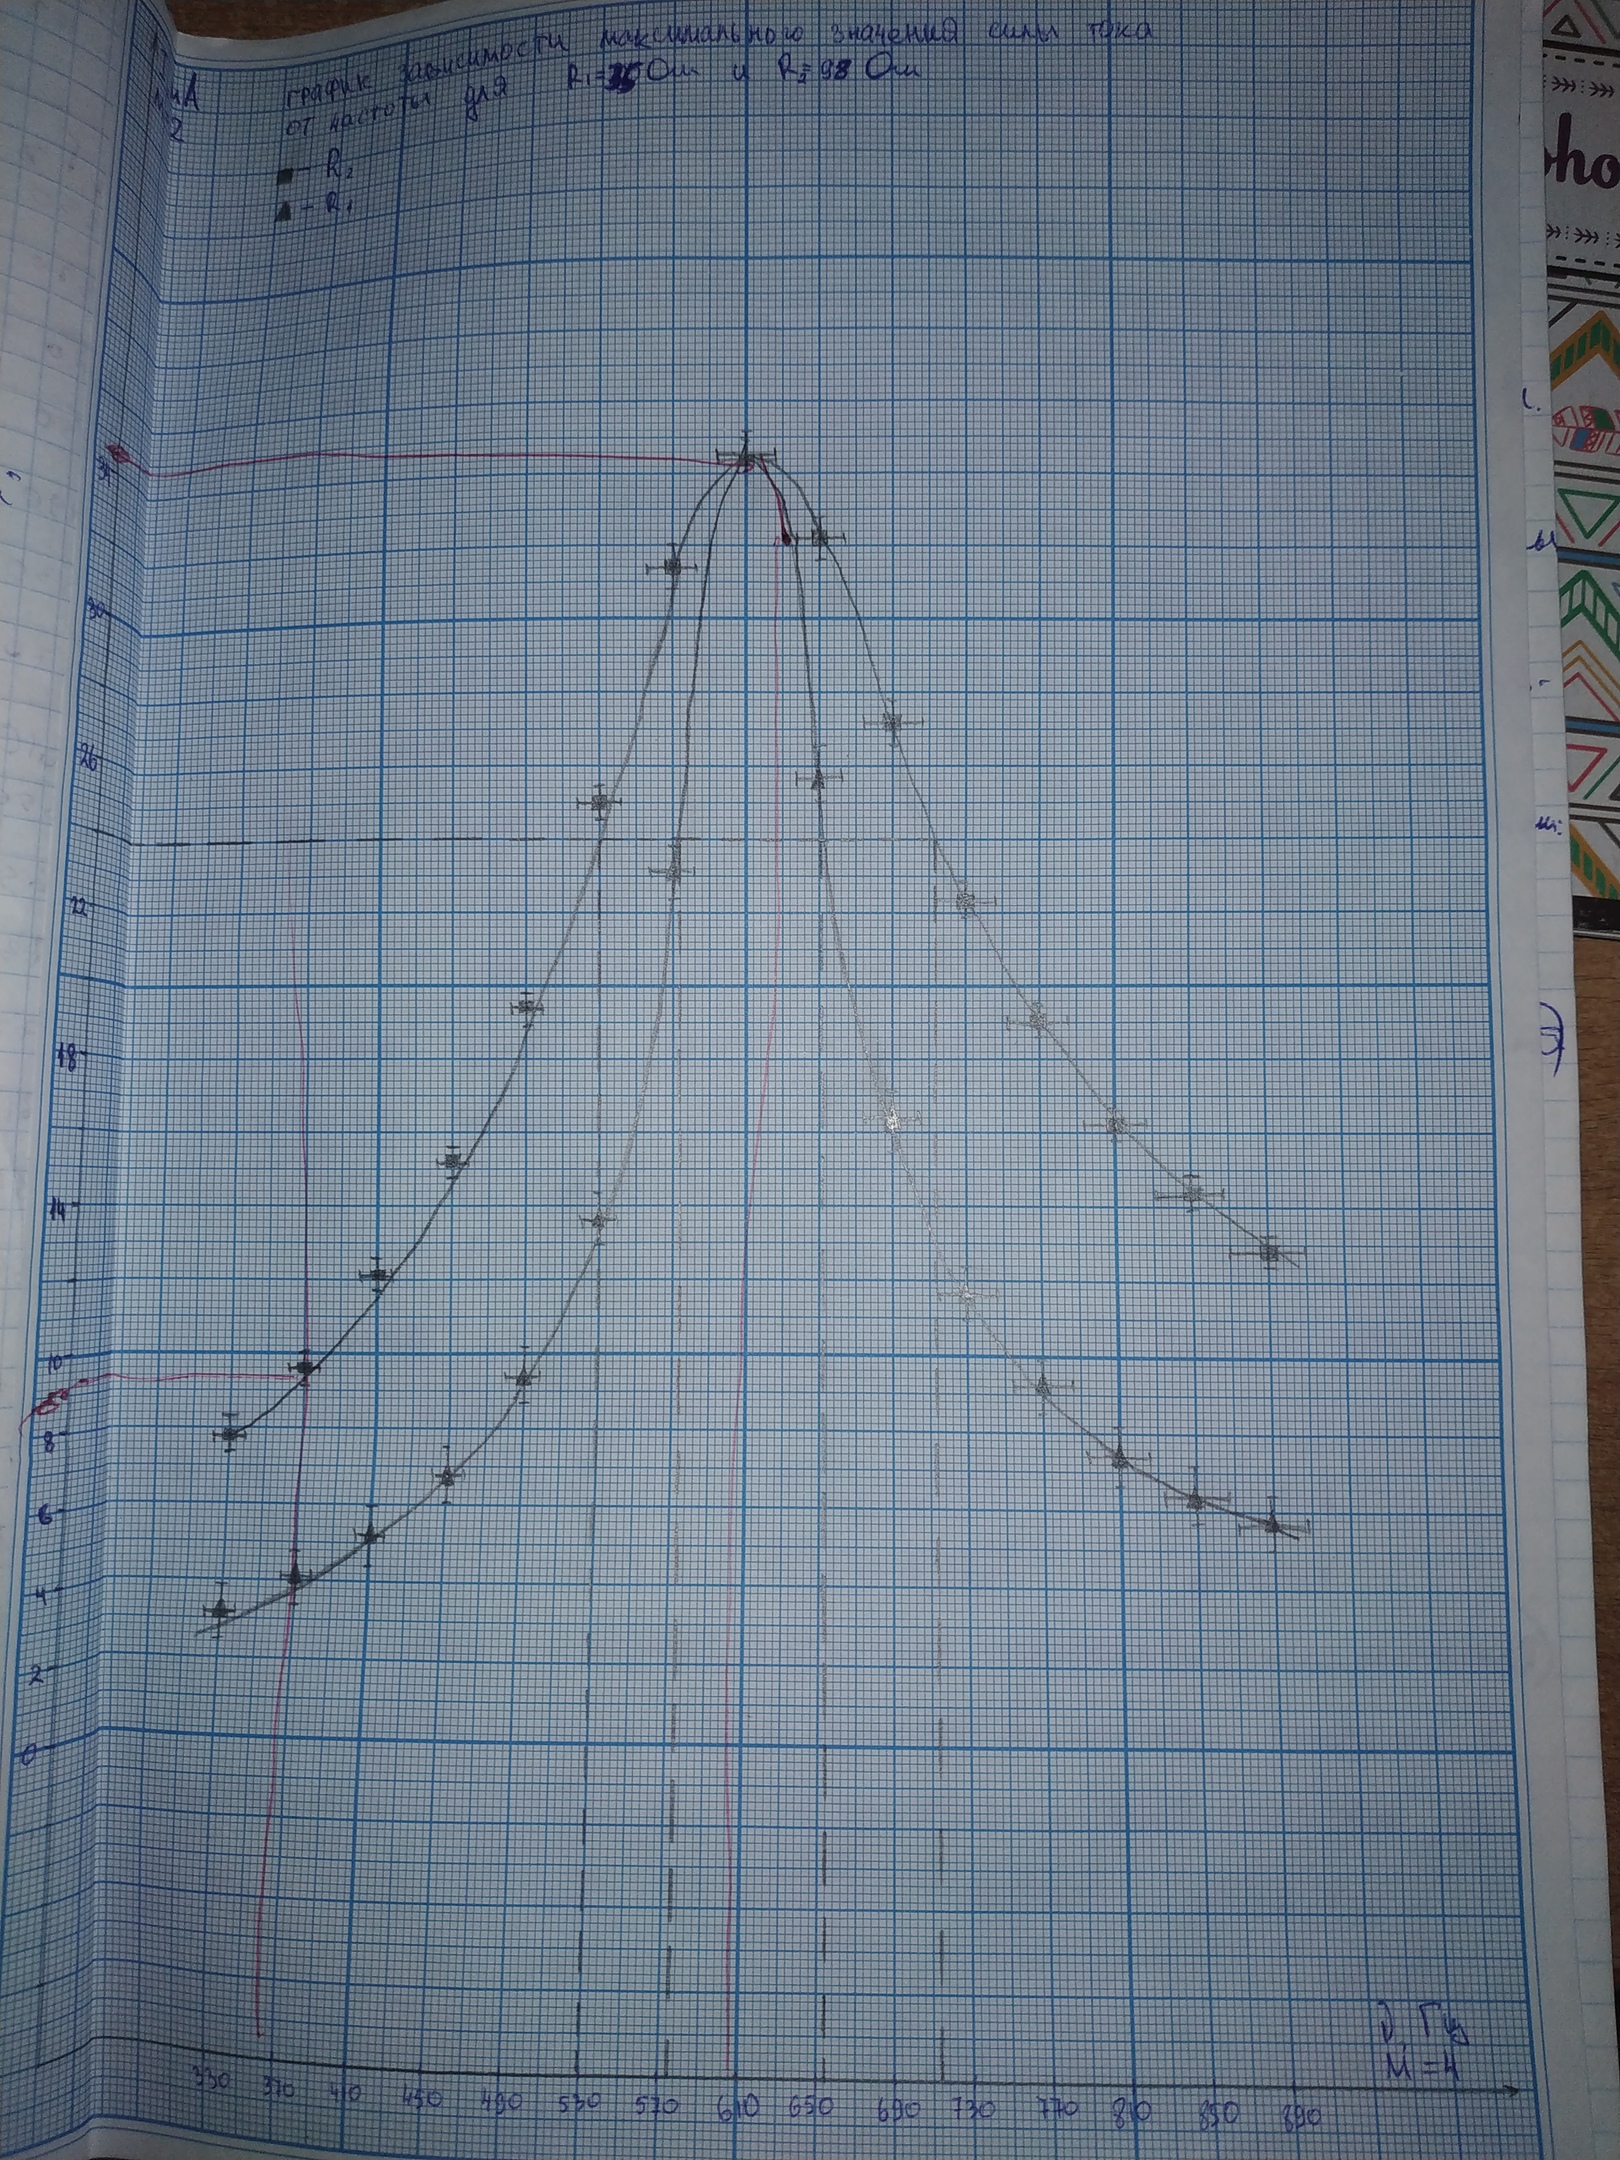 график зависимости максимального значения силы тока
от частоты для R₁=35 Ом и R₂=98 Ом
мА
2
■ – R₂
▲ – R₁
34
30
26
22
18
14
10
8
6
4
2
0
ν, Гц
М = 4
330 370 410 450 490 530 570 610 650 690 730 770 810 850 890